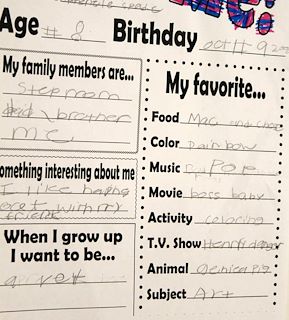 me!
Age # 8 Birthday oct H 9 20
My family members are...
step mom
dad \ brother
me
omething interesting about me
I like having
with my
friend
When I grow up
I want to be...
a vet
My favorite...
Food Mac and chees
Color rainbow
Music Pop
Movie boss baby
Activity coloring
T.V. Show Henry danger
Animal Geinica Pig
Subject Art